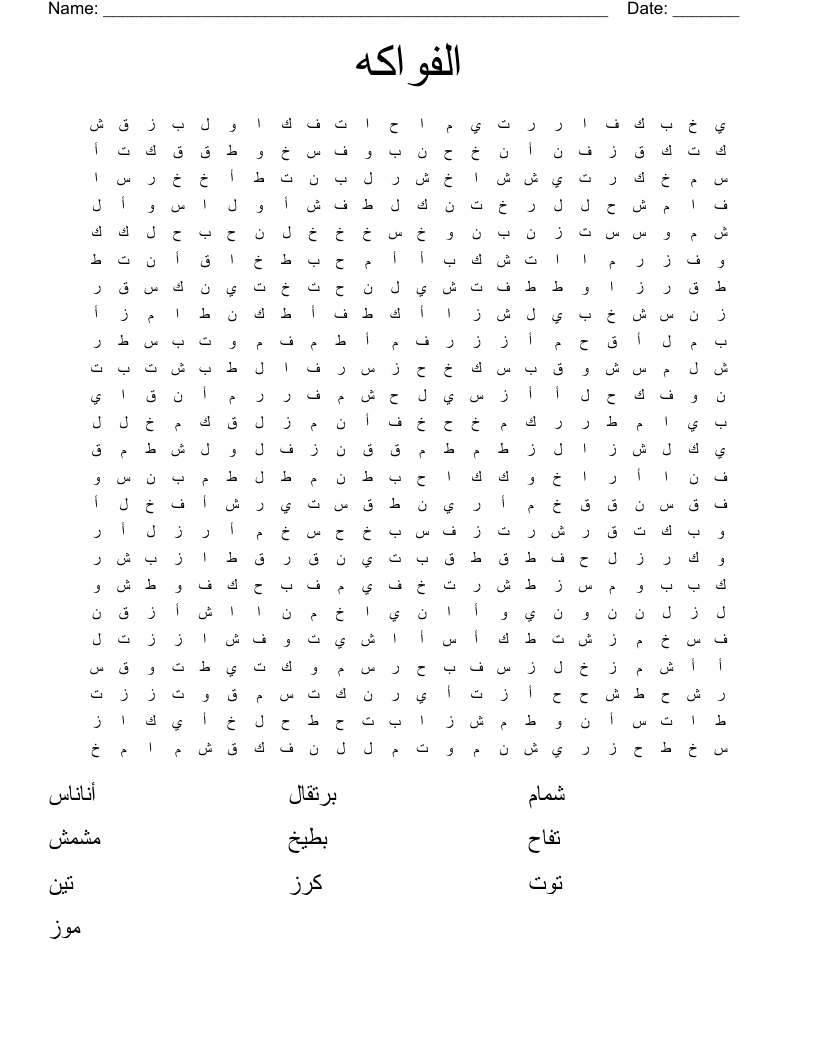 Name: ______ Date: ______
الفواكه
ي خ ب ك ف ا ر ر ت ي م ا ح ا ت ف ك ا و ل ب ز ق ش
ك ت ك ق ز ف ن أ ن خ ح ن ب و ف س خ و ط ق ق ك ت أ
س م خ ك ر ت ي ش ش ا خ ش ر ل ب ن ت ط أ خ خ ر س ا
ف ا م ش ح ل ل ر خ ت ن ك ل ط ف ش أ و ل ا س و أ ل
ش م و س س ت ز ن ب ن و خ س خ خ خ ل ن ح ب ح ل ك ك
و ف ز ر م ا ا ت ش ك ب أ أ م ح ب ط خ ا ق أ ن ت ط
ط ق ر ز ا و ط ط ف ت ش ي ل ن ح ت خ ت ي ن ك س ق ر
ز ن س ش خ ب ي ل ش ز ا أ ك ط ف أ ط ك ن ط ا م ز أ
ب م ل أ ق ح م أ ز ز ر ف م أ ط م ف م و ت ب س ط ر
ش ل م س ش و ق ب س ك خ ح ز س ر ف ا ل ط ب ش ت ب ت
ن و ف ك ح ل أ أ ز س ي ل ح ش م ف ر ر م أ ن ق ا ي
ب ي ا م ط ر ر ك م خ ح خ ف أ ن م ز ل ق ك م خ ل ل
ي ك ل ش ز ا ل ز ط م ط م ق ق ن ز ف ل و ل ش ط م ق
ف ن ا أ ر ا خ و ك ك ا ح ب ط ن م ط ل ط م ب ن س و
ف ق س ن ق ق خ م أ ر ي ن ط ق س ت ي ر ش أ ف خ ل أ
و ب ك ت ق ر ش ر ت ز ف س ب خ ح س خ م أ ر ز ل أ ر
و ك ر ز ل ح ف ط ق ط ق ب ت ي ن ق ر ق ط ا ز ب ش ر
ك ب ب و م س ز ط ش ر ت خ ف ي م ف ب ح ك ف و ط ش و
ل ز ل ن ن و ن ي و أ ا ن ي ا خ م ن ا ا ش أ ز ق ن
ف س خ م ز ش ت ط ك أ س أ ا ش ي ت و ف ش ا ز ز ت ل
أ أ ش م ز خ ل ز س ف ب ح ر س م و ك ت ي ط ت و ق س
ر ش ح ط ش ح ح أ ز ت أ ي ر ن ك ت س م ق و ت ز ز ت
ط ا ت س أ ن و ط م ش ز ا ب ت ح ط ح ل خ أ ي ك ا ز
س خ ط ح ز ر ي ش ن م و ت م ل ل ن ف ك ق ش م ا م خ
شمام برتقال أناناس
تفاح بطيخ مشمش
توت كرز تين
موز